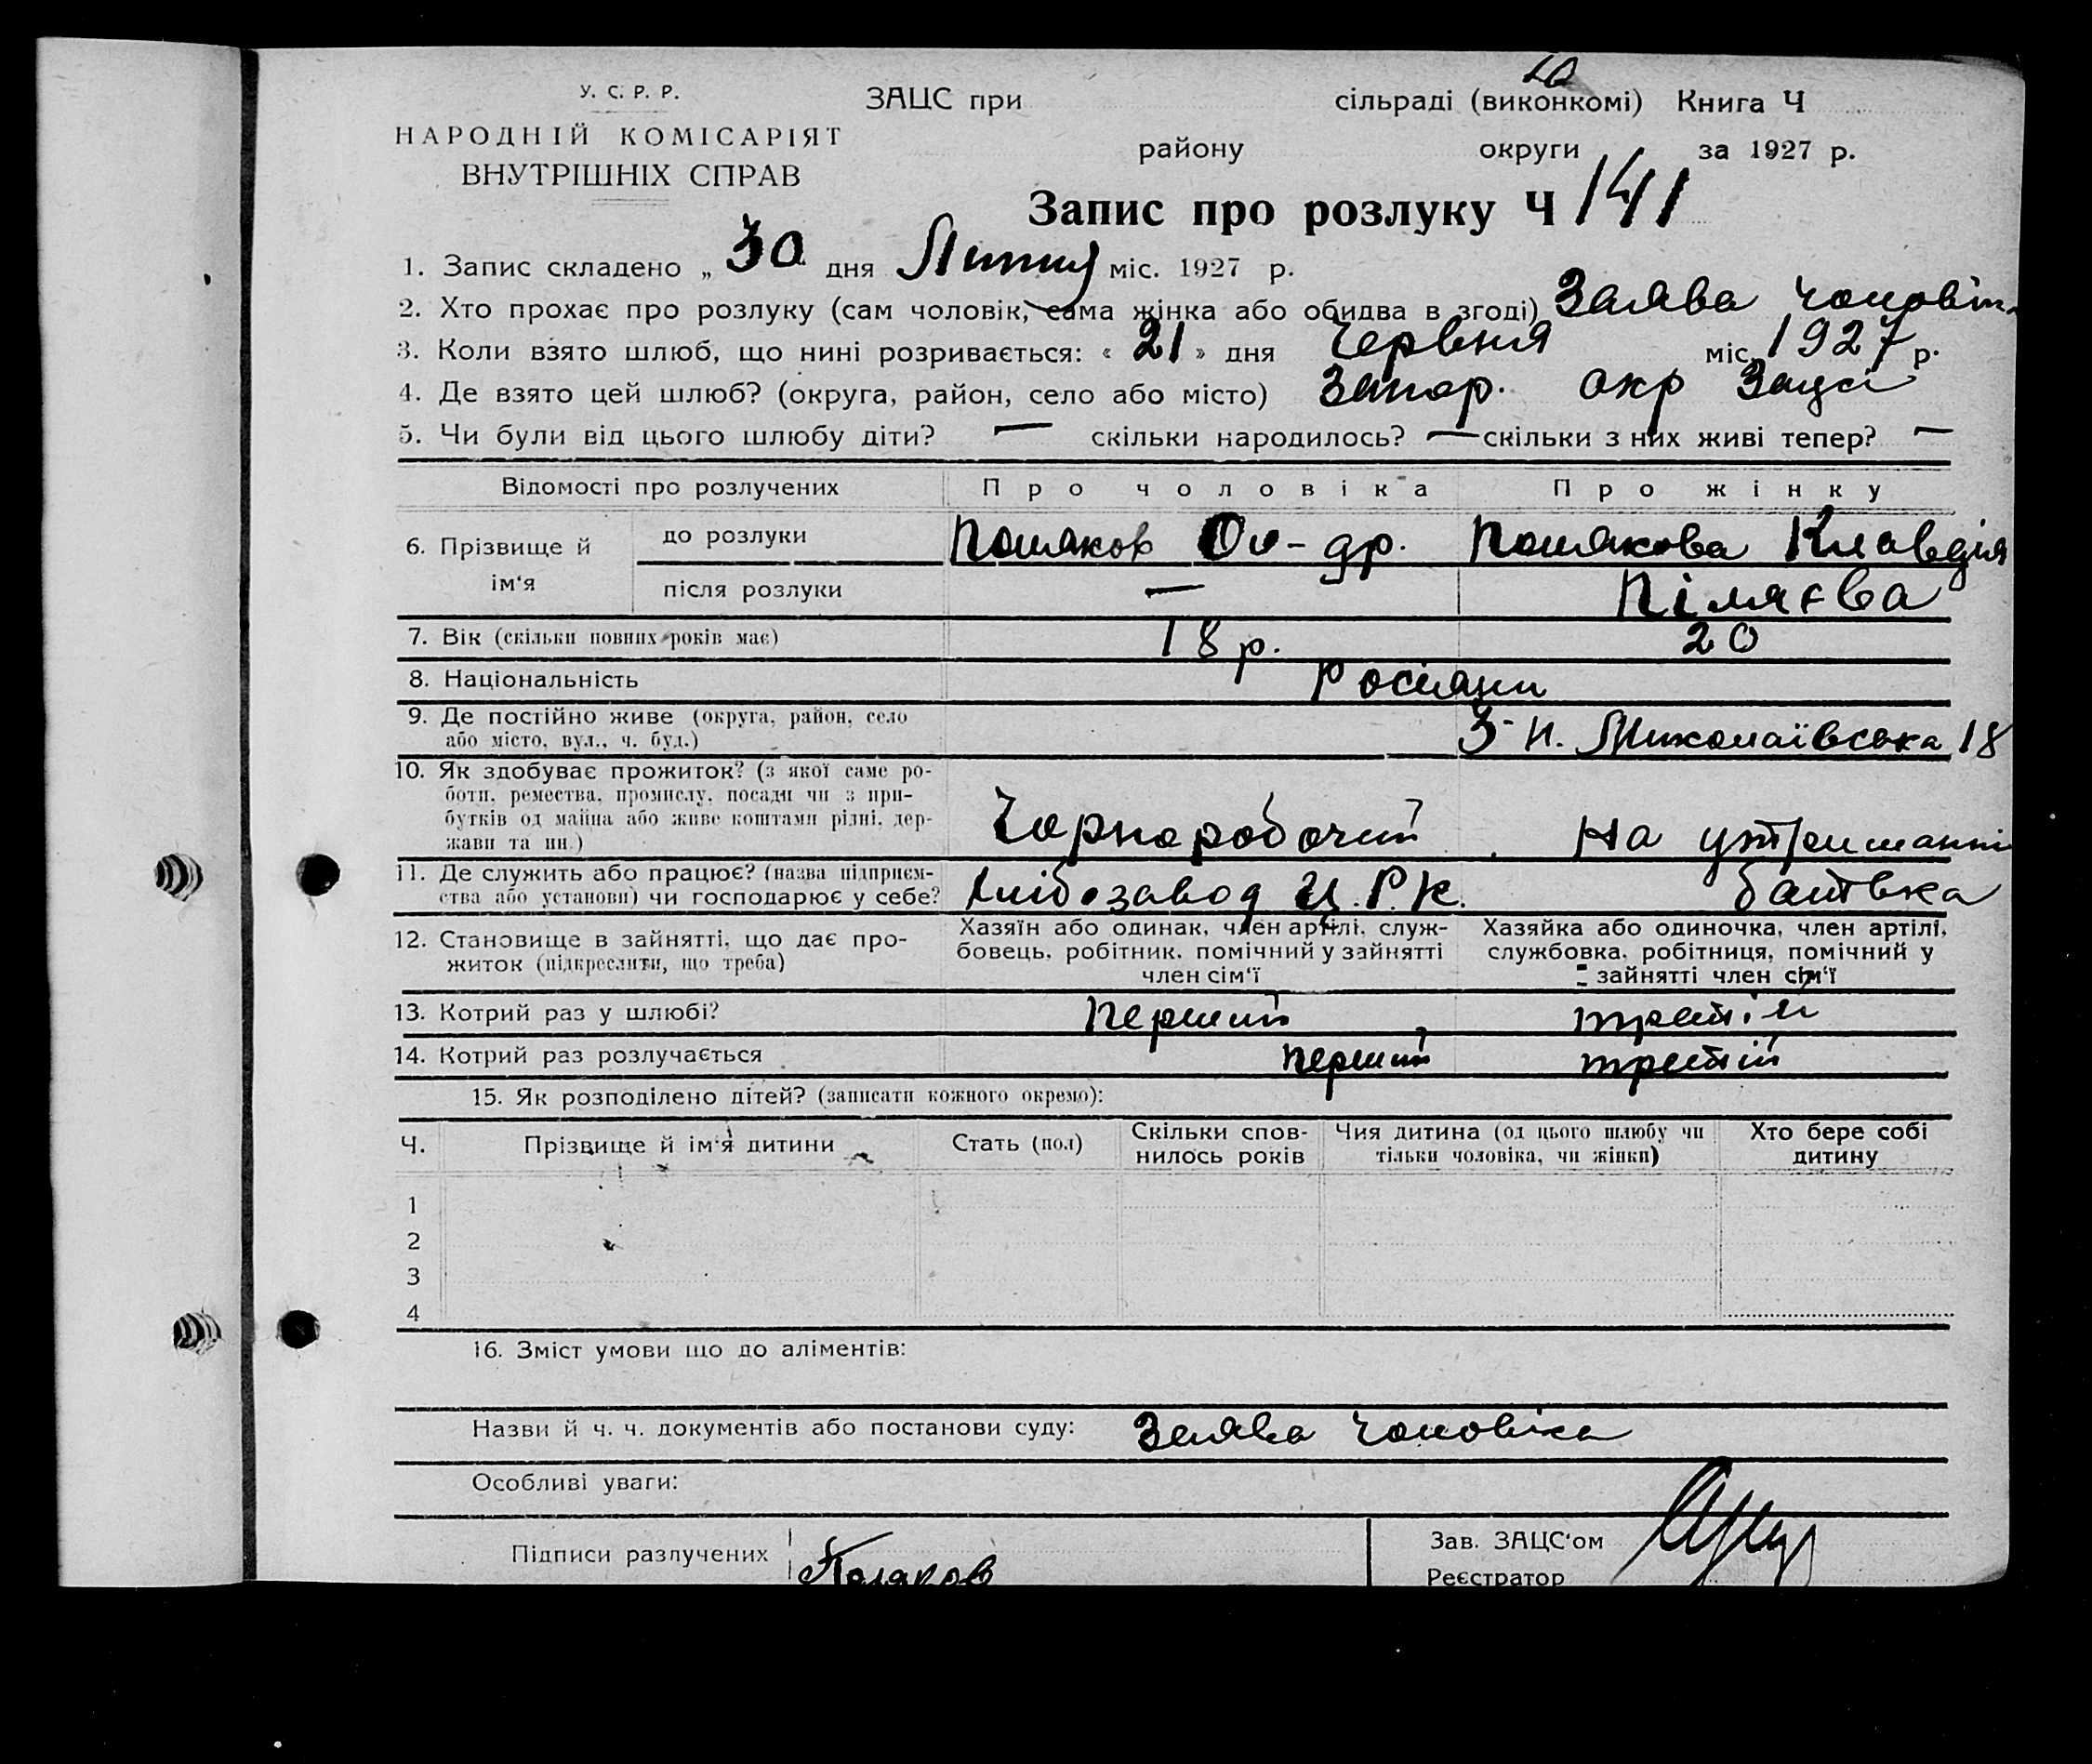 У. С. Р. Р.
НАРОДНІЙ КОМІСАРІЯТ
ВНУТРІШНІХ СПРАВ
ЗАЦС при сільраді (виконкомі) Книга Ч
району округи за 1927 р.
Запис про розлуку Ч 141
1. Запис складено „ 30 дня Липня міс. 1927 р.
2. Хто прохає про розлуку (сам чоловік, сама жінка або обидва в згоді) Заява
3. Коли взято шлюб, що нині розривається: « 21 » дня Червня міс. 1927 р.
4. Де взято цей шлюб? (округа, район, село або місто) Запор. окр Зацсі
5. Чи були від цього шлюбу діти? — скільки народилось? — скільки з них живі тепер? —
Відомості про розлучених Про чоловіка Про жінку
6. Прізвище й ім'я до розлуки Поляков Ол-др. Полякова Клавдія
після розлуки — Піляєва
7. Вік (скільки повних років має) 18 р. 20
8. Національність Росіяни
9. Де постійно живе (округа, район, село
або місто, вул., ч. буд.) Миколаївська 18
10. Як здобуває прожиток? (з якої саме ро-
боти, ремества, промислу, посади чи з при-
бутків од майна або живе коштами рідні, дер-
жави та ин.) Чорноробочий На утриманні
11. Де служить або працює? (назва підприєм-
ства або установи) чи господарює у себе? Хлібозавод Ц.Р.К. батька
12. Становище в зайнятті, що дає про-
житок (підкреслити, що треба)
Хазяїн або одинак, член артілі, служ-
бовець, робітник, помічний у зайнятті
член сім'ї
Хазяйка або одиночка, член артілі,
службовка, робітниця, помічний у
зайнятті член сім'ї
13. Котрий раз у шлюбі? перший третій
14. Котрий раз розлучається перший третій
15. Як розподілено дітей? (записати кожного окремо):
Ч. Прізвище й ім'я дитини Стать (пол) Скільки спов-
нилось років Чия дитина (од цього шлюбу чи
тільки чоловіка, чи жінки) Хто бере собі
дитину
1
2
3
4
16. Зміст умови що до аліментів:
Назви й ч. ч. документів або постанови суду: Заява чоловіка
Особливі уваги:
Підписи разлучених Поляков
Зав. ЗАЦС'ом
Реєстратор